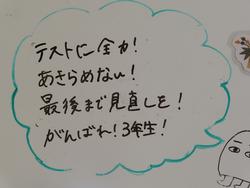 テストに全力!
あきらめない!
最後まで見直しを!
がんばれ!3年生!